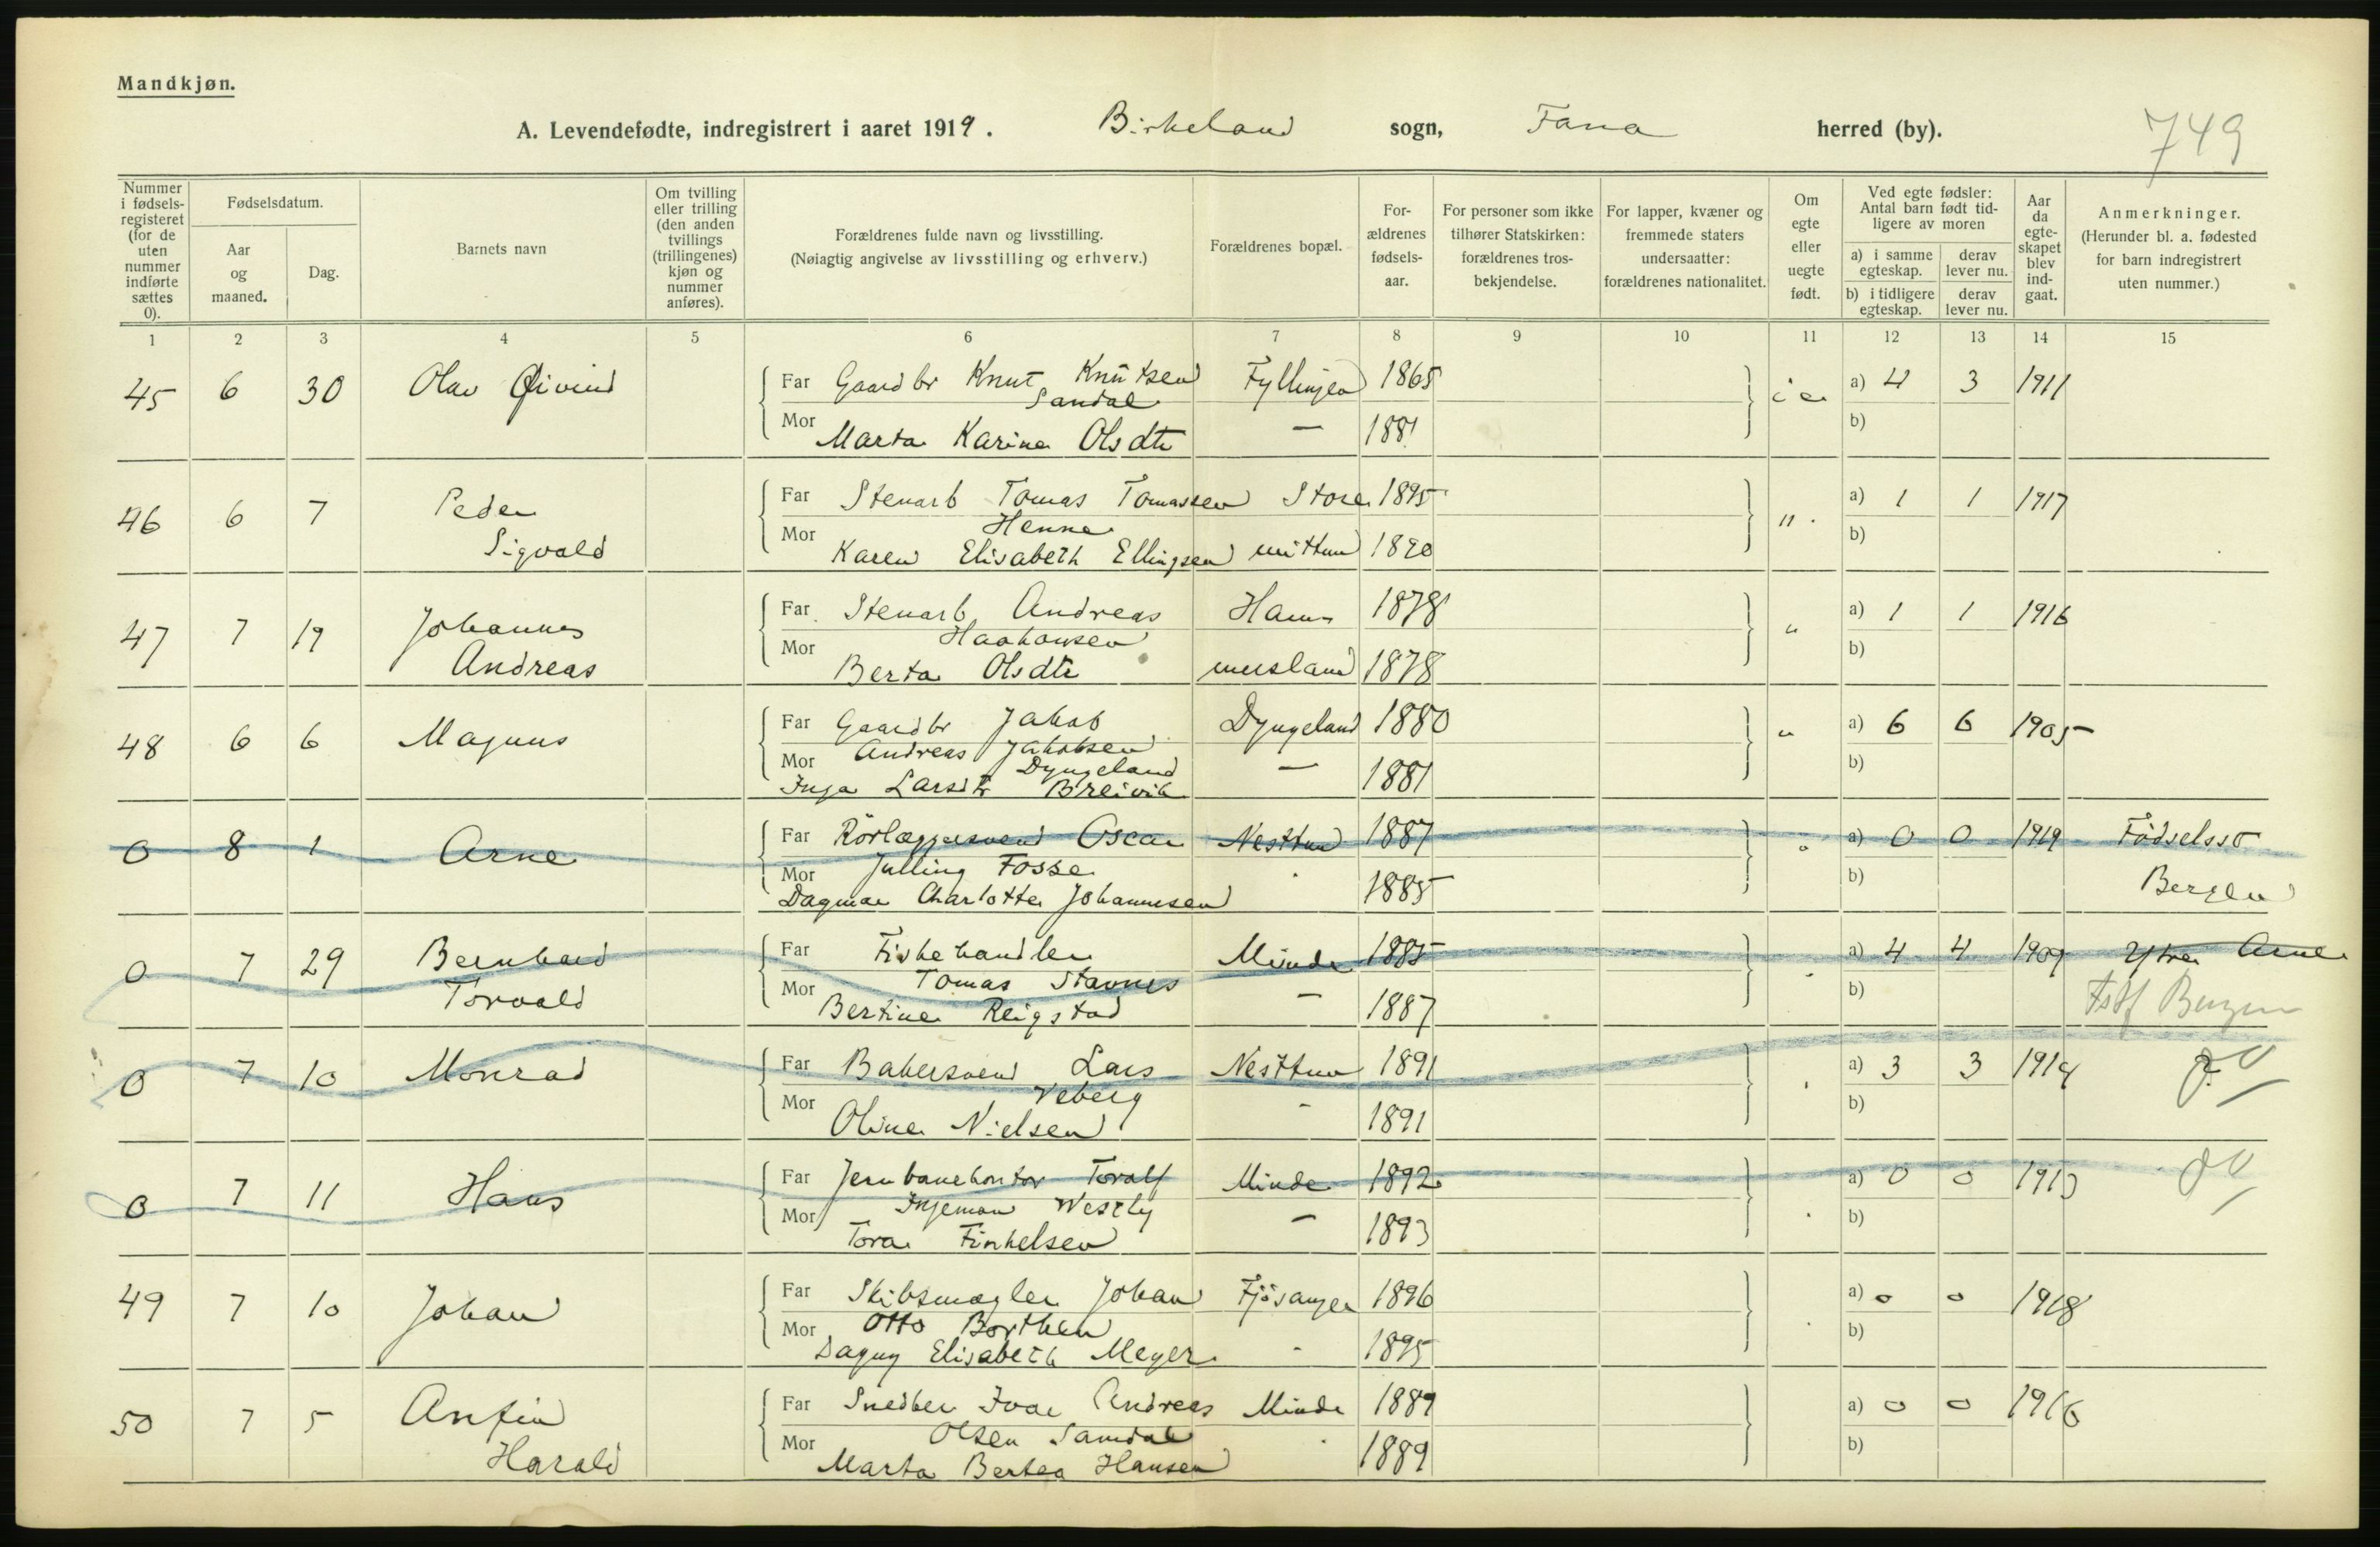 Mandkjøn.
A. Levendefødte, indregistrert i aaret 1919. Birkeland sogn, Fana herred (by). 749
Nummer i fødsels-registeret (for de uten nummer indførte sættes 0).
Fødselsdatum.
Aar og maaned.
Dag.
Barnets navn
Om tvilling eller trilling (den anden tvillings (trillingenes) kjøn og nummer anføres).
Forældrenes fulde navn og livsstilling.
(Nøiagtig angivelse av livsstilling og erhverv.)
Forældrenes bopæl.
For-ældrenes fødsels-aar.
For personer som ikke tilhører Statskirken: forældrenes tros-bekjendelse.
For lapper, kvæner og fremmede staters undersaatter: forældrenes nationalitet.
Om egte eller uegte født.
Ved egte fødsler: Antal barn født tid-ligere av moren
a) i samme egteskap.
derav lever nu.
b) i tidligere egteskap.
derav lever nu.
Aar da egte-skapet blev ind-gaat.
Anmerkninger.
(Herunder bl. a. fødested for barn indregistrert uten nummer.)
1 2 3 4 5 6 7 8 9 10 11 12 13 14 15
45 6 30 Olav Øivind Far Gaardbr Knut Knutsen Fyllingen 1865 a) 4 3 1911
Sandal
Mor Marta Karina Olsdtr — 1881 b)
46 6 7 Peder Far Stenarb Tomas Tomassen Store 1895 " a) 1 1 1917
Sigvald Henne
Mor Karen Elisabeth Ellingsen mittun 1890 b)
47 7 19 Johannes Far Stenarb Andreas Ham- 1878 " a) 1 1 1916
Andreas Haakonsen
Mor Berta Olsdtr mersland 1878 b)
48 6 6 Magnus Far Gaardbr Jakob Dyngeland 1880 " a) 6 6 1905
Andreas Jakobsen
Dyngeland
Mor Inga Larsdtr Breivik — 1881 b)
0 8 1 Arne Far Rörlæggersvend Oscar Nesttun 1887 a) 0 0 1919 Födselsst
Julling Fosse
Mor Dagmar Charlotte Johannesen 1885 b) Bergen
0 7 29 Bernhard Far Fiskehandler Minde 1885 a) 4 4 1909 Ytre Arne
Torvald Tomas Stavnes
Mor Bertine Reigstad — 1887 b) Fstf Bergen
0 7 10 Monrad Far Bakersvend Lars Nesttun 1891 a) 3 3 1914
Veberg
Mor Oline Nielsen - 1891 b)
0 7 11 Hans Far Jernbanekontor Toralf Minde 1892 a) 0 0 1913
Ingeman Westly
Mor Tora Finkelsen — 1893 b)
49 7 10 Johan Far Skibsmægler Johan Fjösanger 1896 a) 0 0 1918
Otto Borthen
Mor Dagny Elisabeth Meyer - 1895 b)
50 7 5 Anfin Far Snedker Ivar Andreas Minde 1889 a) 0 0 1916
Harald Olsen Samdal
Mor Marta Bertea Hansen 1889 b)